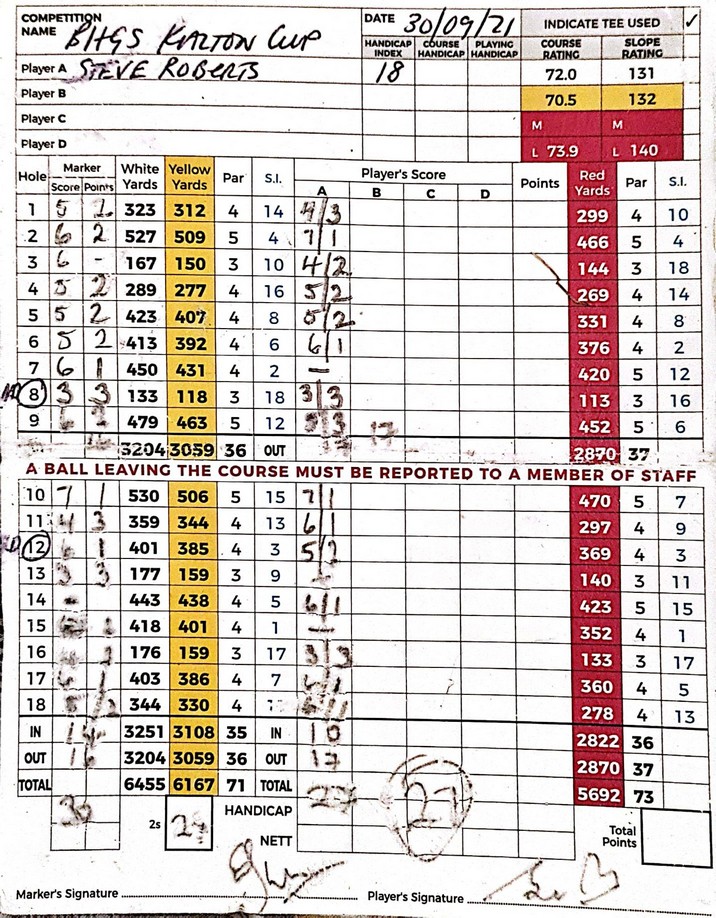 COMPETITION NAME BHGS KARTON CUP DATE 30/09/21 INDICATE TEE USED ✓
HANDICAP INDEX COURSE HANDICAP PLAYING HANDICAP COURSE RATING SLOPE RATING
Player A STEVE ROBERTS 18 72.0 131
Player B 70.5 132
Player C M M
Player D L 73.9 L 140
Hole Marker White Yards Yellow Yards Par S.I. Player's Score Points Red Yards Par S.I.
Score Points A B C D
1 5 2 323 312 4 14 4/3 299 4 10
2 6 2 527 509 5 4 7/1 466 5 4
3 6 - 167 150 3 10 4/2 144 3 18
4 5 2 289 277 4 16 5/2 269 4 14
5 5 2 423 407 4 8 5/2 331 4 8
6 5 2 413 392 4 6 6/1 376 4 2
7 6 1 450 431 4 2 — 420 5 12
8 3 3 133 118 3 18 3/3 113 3 16
9 6 2 479 463 5 12 5/3 17 452 5 6
16 3204 3059 36 OUT 17 2870 37
A BALL LEAVING THE COURSE MUST BE REPORTED TO A MEMBER OF STAFF
10 7 1 530 506 5 15 7/1 470 5 7
11 4 3 359 344 4 13 6/1 297 4 9
12 6 1 401 385 4 3 5/2 369 4 3
13 3 3 177 159 3 9 140 3 11
14 - 443 438 4 5 6/1 423 5 15
15 418 401 4 1 — 352 4 1
16 176 159 3 17 3/3 133 3 17
17 6 1 403 386 4 7 6/1 360 4 5
18 5 344 330 4 278 4 13
IN 14 3251 3108 35 IN 10 2822 36
OUT 16 3204 3059 36 OUT 17 2870 37
TOTAL 6455 6167 71 TOTAL 27 27 5692 73
30 2s HANDICAP
NETT Total Points
Marker's Signature Player's Signature